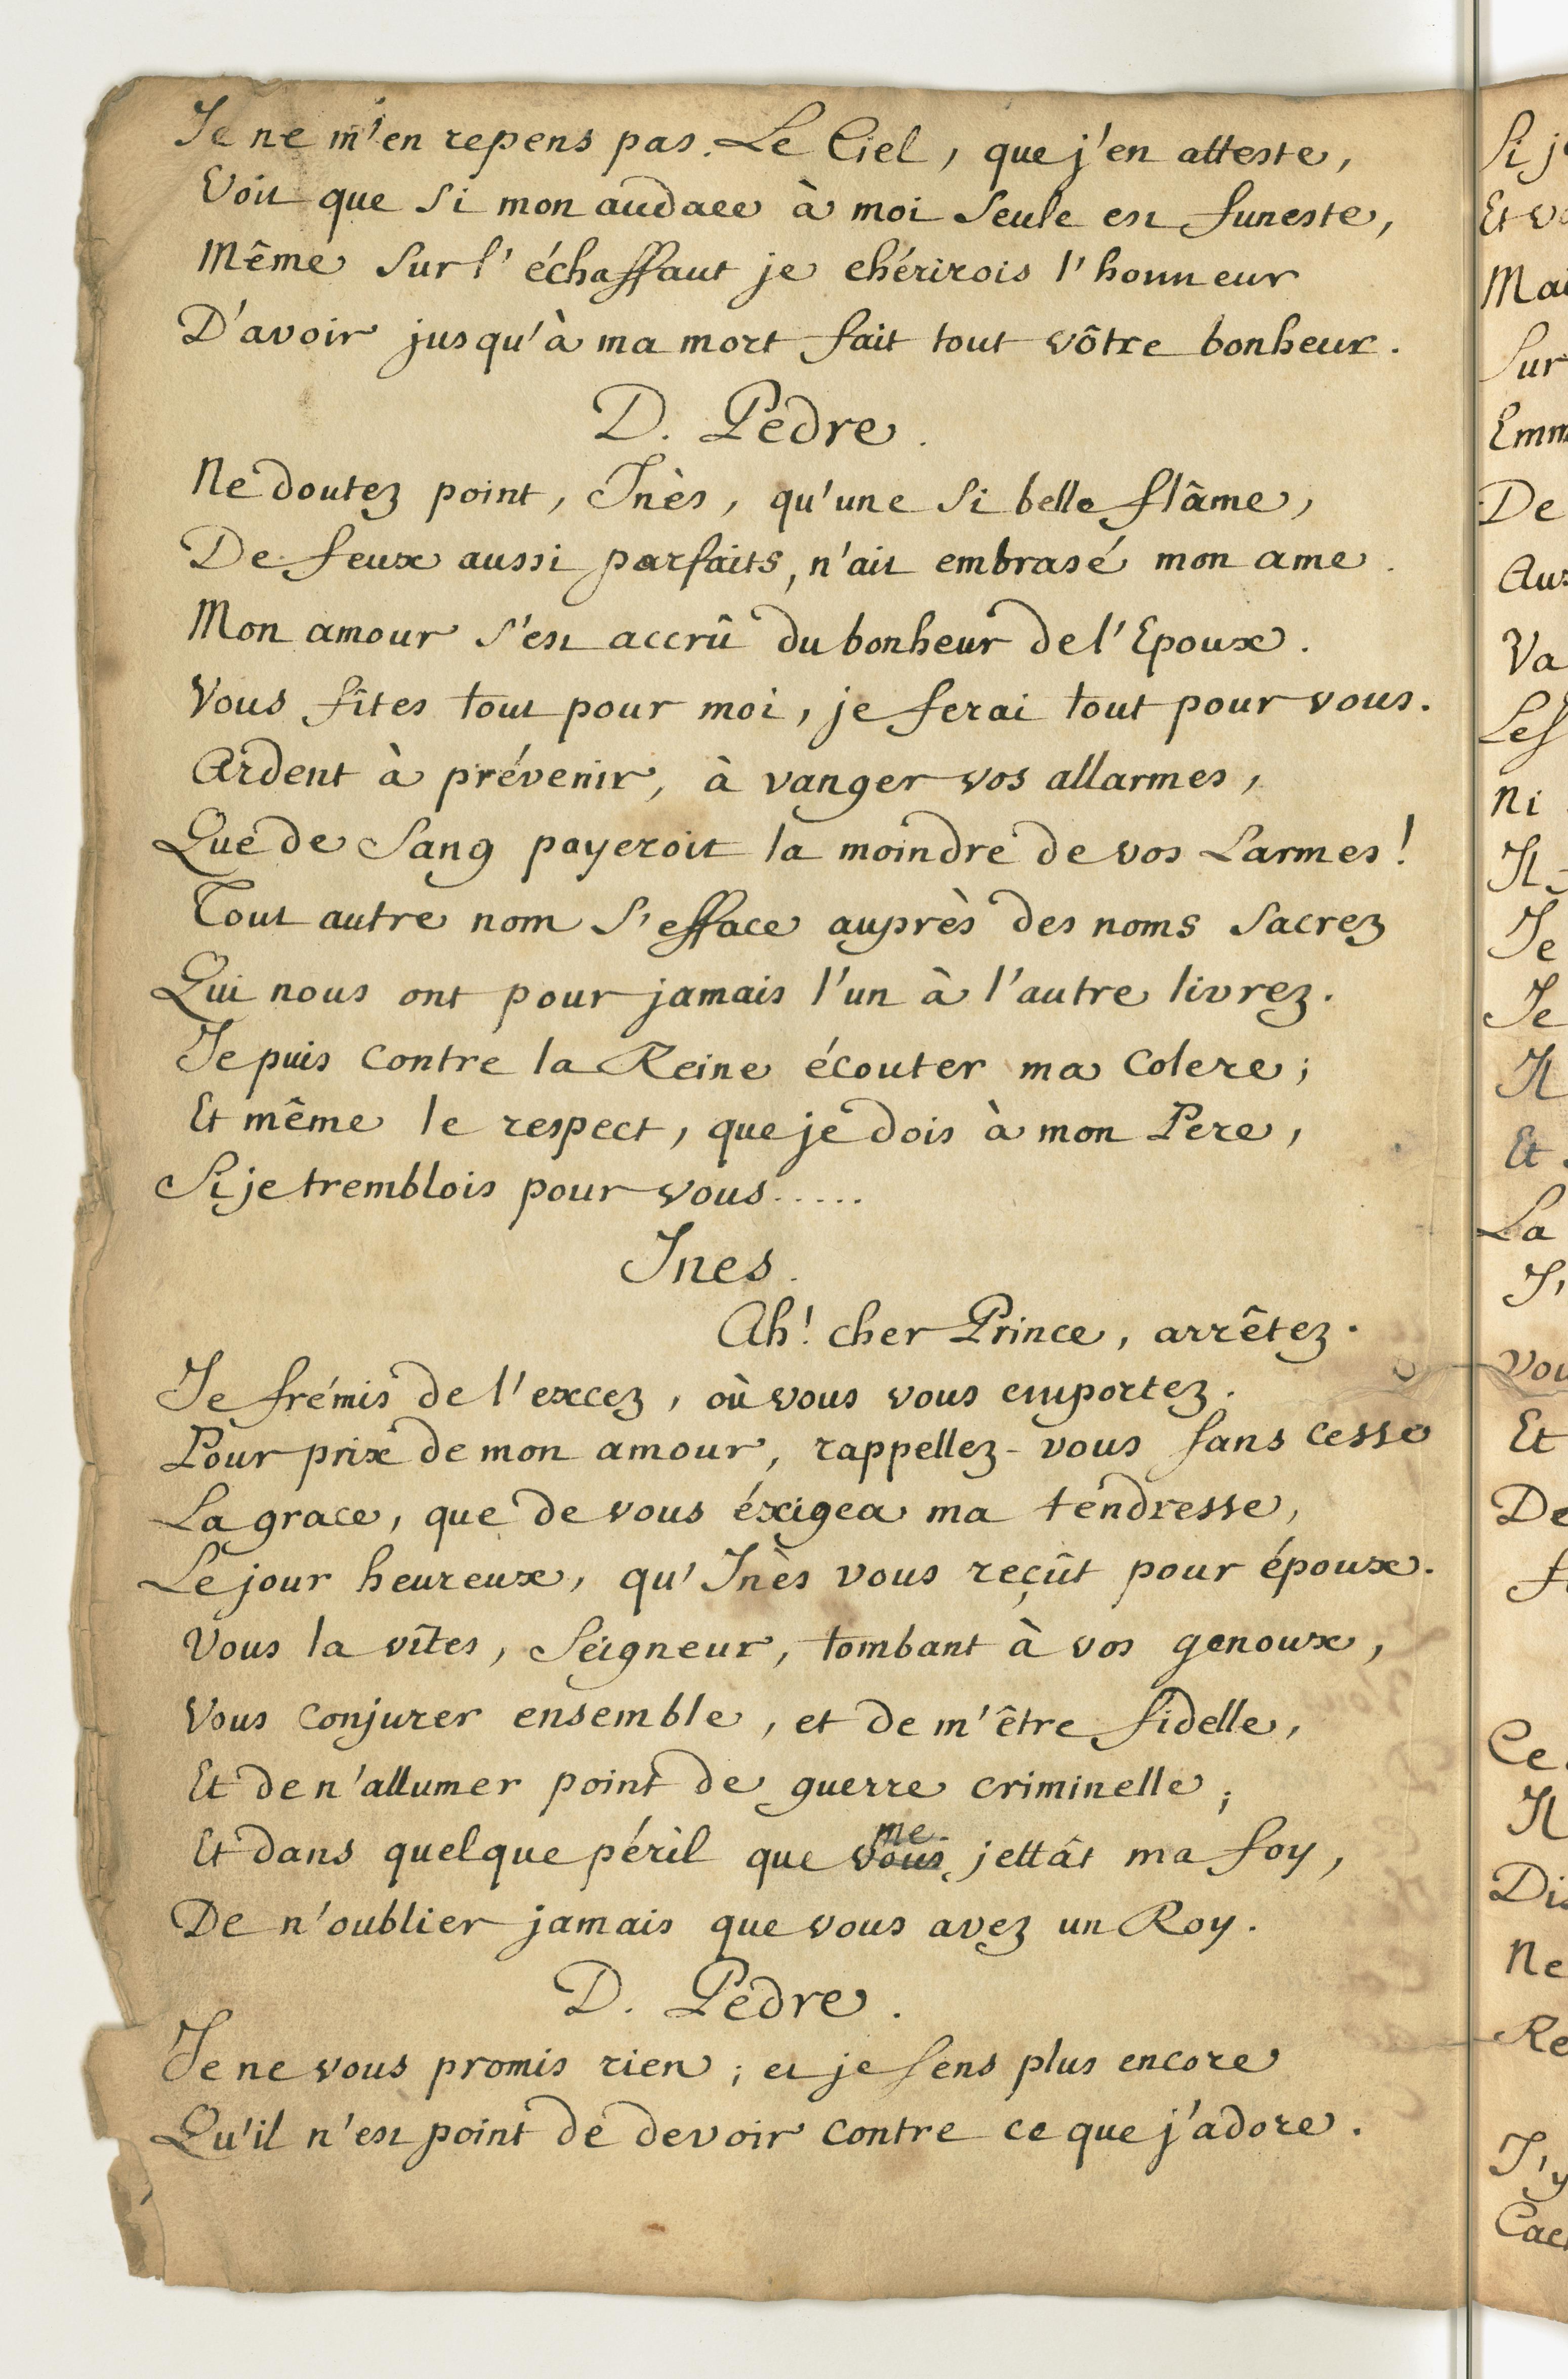 Je ne m'en repens pas. Le Ciel, que j'en atteste,
Voit que si mon audace à moi seule est funeste,
Même sur l'échaffaut je chérirois l'honneur
D'avoir jusqu'à ma mort fait tout vôtre bonheur.
D. Pedre.
Ne doutez point, Inès, qu'une si belle flâme,
De feux aussi parfaits, n'ait embrasé mon ame.
Mon amour s'est accrû du bonheur de l'Epoux.
Vous fîtes tout pour moi, je ferai tout pour vous.
Ardent à prévenir, à vanger vos allarmes,
Que de sang payeroit la moindre de vos Larmes!
Tout autre nom s'efface auprès des noms sacrez
Qui nous ont pour jamais l'un à l'autre livrez.
Je puis contre la Reine écouter ma colere;
Et même le respect, que je dois à mon Pere,
Si je tremblois pour vous.....
Ines.
Ah! cher Prince, arrêtez.
Je frémis de l'excez, où vous vous emportez.
Pour prix de mon amour, rappellez-vous sans cesse
La grace, que de vous éxigea ma tendresse,
Le jour heureux, qu'Inès vous reçût pour époux.
Vous la vîtes, Seigneur, tombant à vos genoux,
Vous conjurer ensemble, et de m'être fidelle,
Et de n'allumer point de guerre criminelle;
Et dans quelque péril que vous me jettât ma foy,
De n'oublier jamais que vous avez un Roy.
D. Pedre.
Je ne vous promis rien; et je sens plus encore
Qu'il n'est point de devoir contre ce que j'adore.
Si j
Et v
Mai
Sur
Emm
De
Aux
Va
Les
Ni
Il
Je
Je
Il
Et
La
Vou
Et
De
Ce
Il
Dis
Ne
Re
J'y